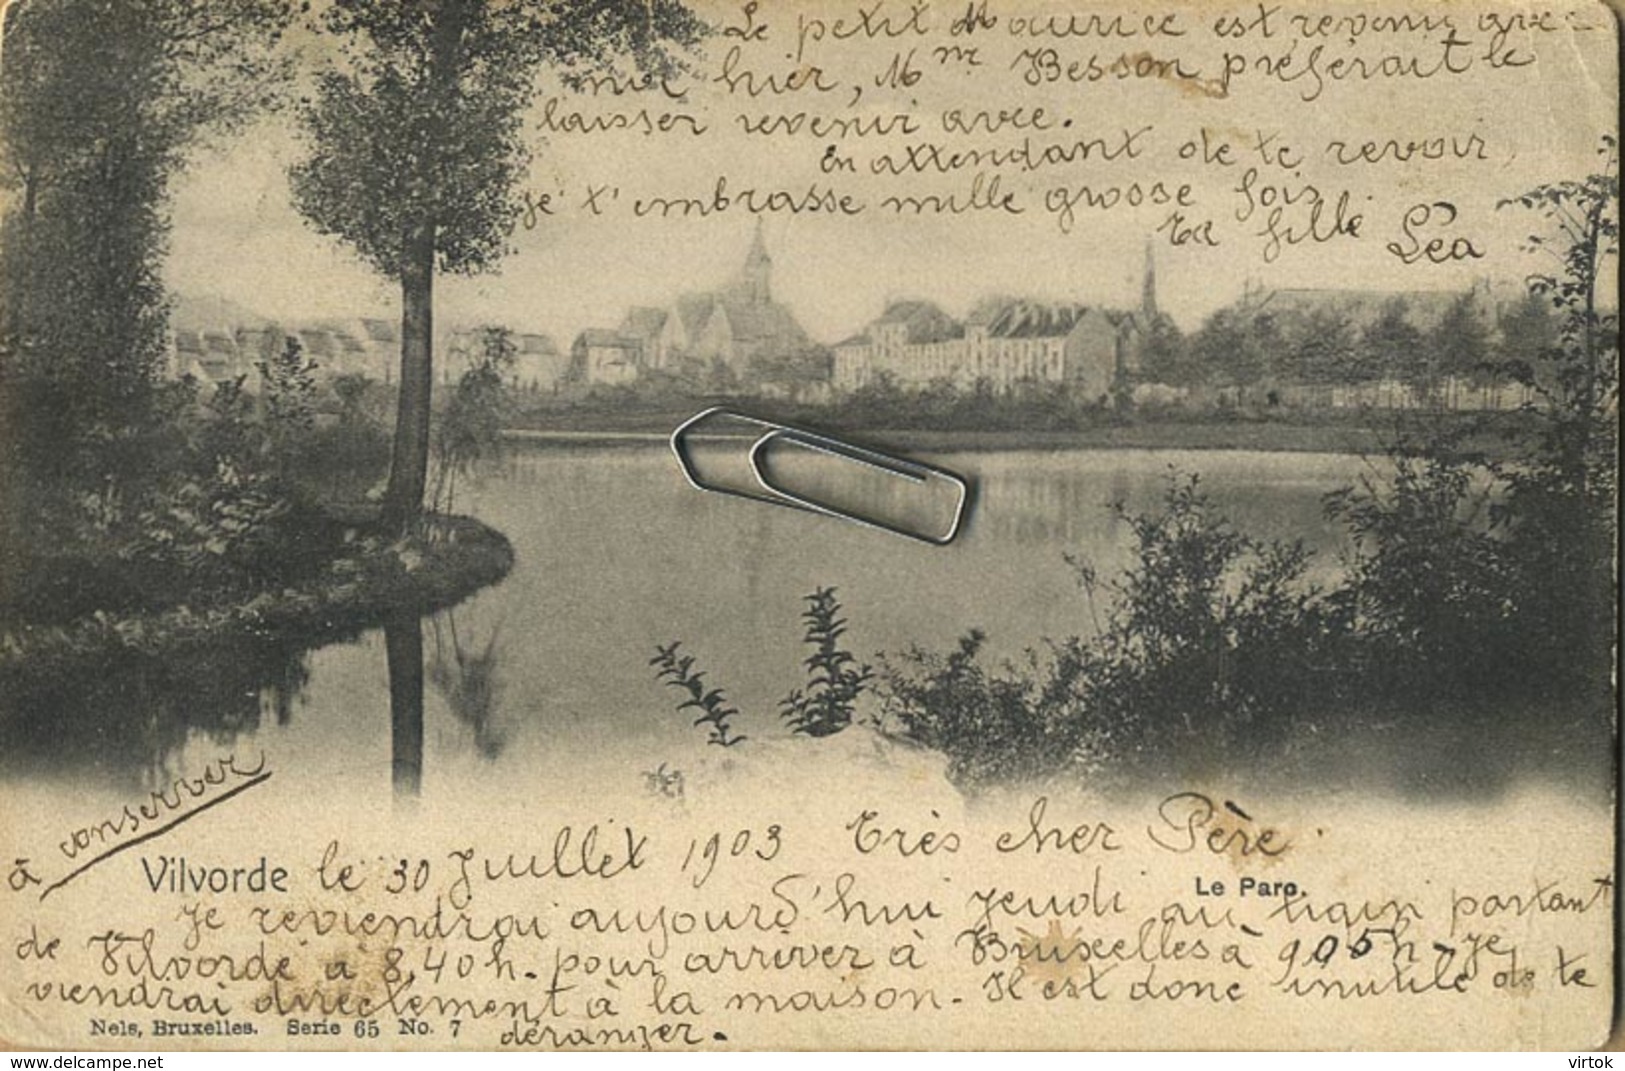 Le petit Maurice est revenu avec
moi hier, Mme Besson préferait le
laisser revenir avec.
En attendant de te revoir,
je t'embrasse mille grosse fois
Ta fille Léa
à conserver
Vilvorde le 30 Juillet 1903 Très cher Père.
Le Parc.
Je reviendrai aujourd'hui jeudi au train partant
de Vilvorde à 8,40h. pour arriver à Bruxelles à 9,05h - je
viendrai directement à la maison. Il est donc inutile de te
déranger.
Nels, Bruxelles. Serie 65 No. 7
delcampe.net
virtok